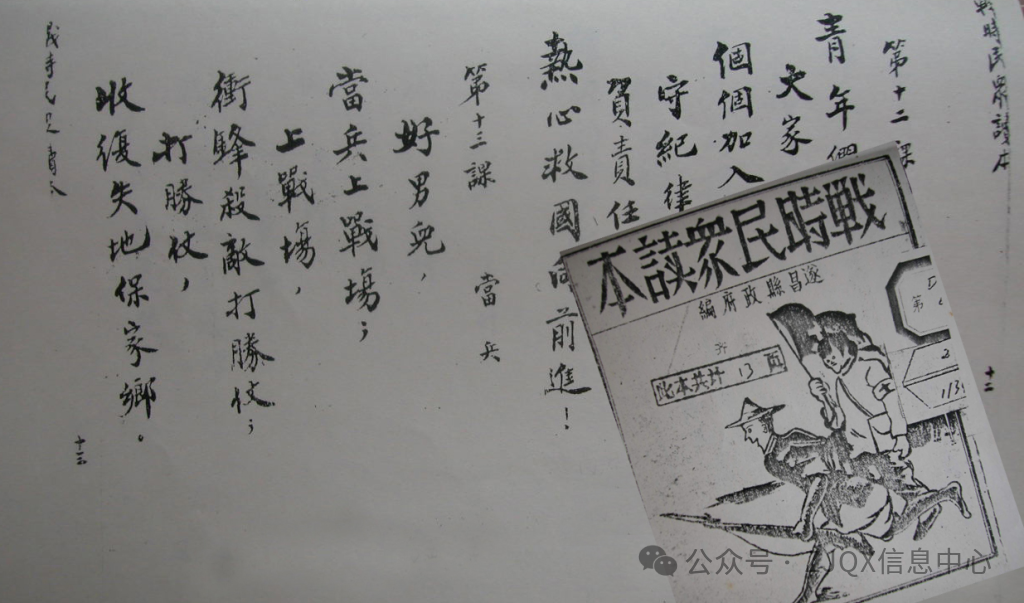 戰時民眾讀本
第十二課
青年們
大家
個個加入
守紀律
負責任
熱心救國同前進！
十二
第十三課 當兵
好男兒，
當兵上戰場；
上戰場，
衝鋒殺敵打勝仗；
打勝仗，
收復失地保家鄉。
十三
戰時民眾讀本
戰時民眾讀本
遂昌縣政府編
此本共廾13面
第
公众号·ZJQX信息中心